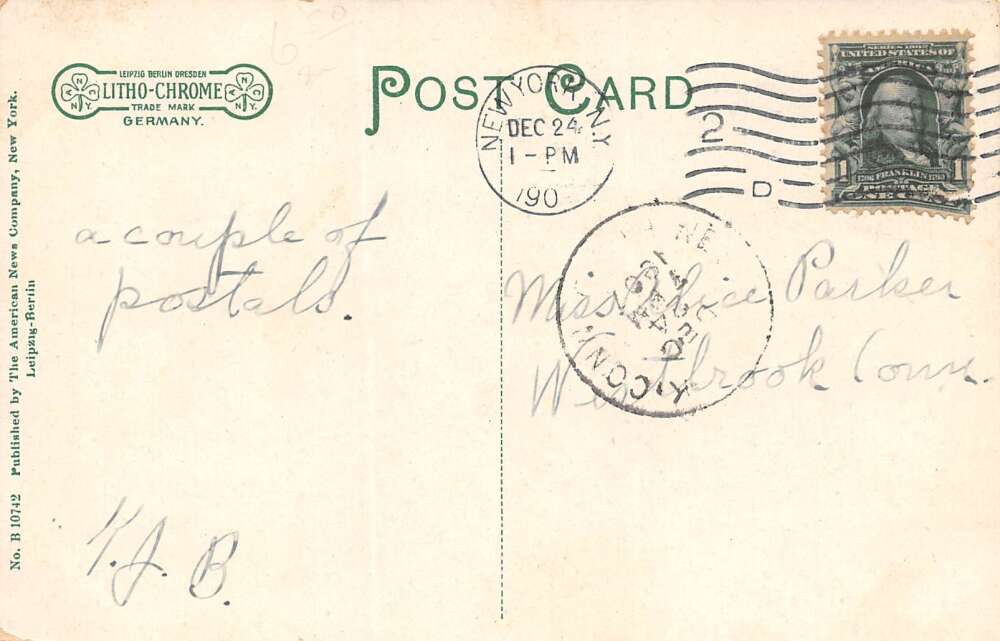 LEIPZIG BERLIN DRESDEN
LITHO-CHROME
TRADE MARK
GERMANY.
N Y
N Y
POST CARD
NEW YORK, N.Y.
DEC 24
1-PM
190
2
D
SERIES 1902
UNITED STATES OF
AMERICA
1 FRANKLIN 1
POSTAGE
ONE CENT
a couple of
postals.
Miss Alice Parker
Westbrook Conn.
DEC
24
CONN.
J. B.
No. B 10742 Published by The American News Company, New York.
Leipzig-Berlin